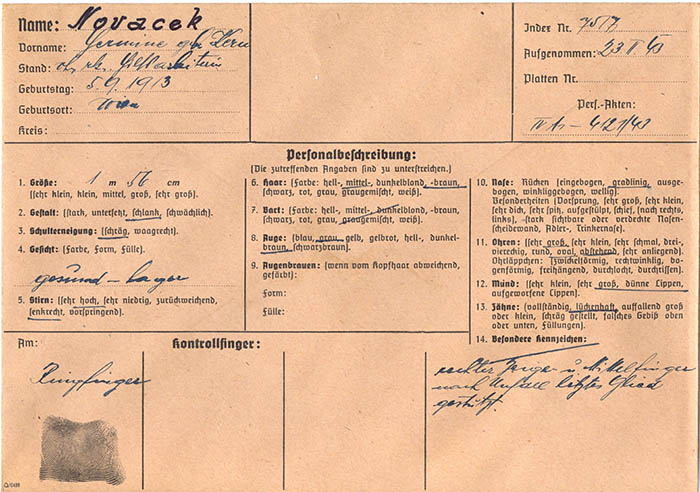 Name: Novacek
Vorname: Hermine geb. Kern
Stand: Hilfsarbeiterin
Geburtstag: 5.9.1913
Geburtsort: Wien
Kreis:
Index Nr. 7517
Aufgenommen: 23 II 43
Platten Nr.
Pers.-Akten:
Personalbeschreibung:
(Die zutreffenden Angaben sind zu unterstreichen.)
1. Größe: 1 m 56 cm
(sehr klein, klein, mittel, groß, sehr groß).
2. Gestalt: (stark, untersetzt, schlank, schwächlich).
3. Schulterneigung: (schräg, waagrecht).
4. Gesicht: (Farbe, Form, Fülle).
gesund – hager
5. Stirn: (sehr hoch, sehr niedrig, zurückweichend,
senkrecht, vorspringend).
6. Haar: (Farbe: hell-, mittel-, dunkelblond, -braun,
schwarz, rot, grau, graugemischt, weiß).
7. Bart: (Farbe: hell-, mittel-, dunkelblond-, -braun,
schwarz, rot, grau, graugemischt, weiß).
8. Auge: (blau, grau, gelb, gelbrot, hell-, dunkel-
braun, schwarzbraun).
9. Augenbrauen: (wenn vom Kopfhaar abweichend,
gefärbt):
Form:
Fülle:
10. Nase: Rücken (eingebogen, gradlinig, ausge-
bogen, winkliggebogen, wellig).
Besonderheiten (Vorsprung, sehr groß, sehr klein,
sehr dick, sehr spitz, aufgestülpt, schief, nach rechts,
links), -stark sichtbare oder verdeckte Nasen-
scheidewand, Adler-, Trinkernase).
11. Ohren: (sehr groß, sehr klein, sehr schmal, drei-,
viereckig, rund, oval, abstehend, sehr anliegend).
Ohrläppchen: (zwickelförmig, rechtwinklig, bo-
genförmig, freihängend, durchlocht, durchrissen).
12. Mund: (sehr klein, sehr groß, dünne Lippen,
aufgeworfene Lippen).
13. Zähne: (vollständig, lückenhaft, auffallend groß
oder klein, schräg gestellt, falsches Gebiß oben
oder unten, Füllungen).
14. Besondere Kennzeichen:
rechter Zeige- u. Mittelfinger
nach Unfall letztes Glied
gestutzt.
Am:
Kontrollfinger:
Ringfinger